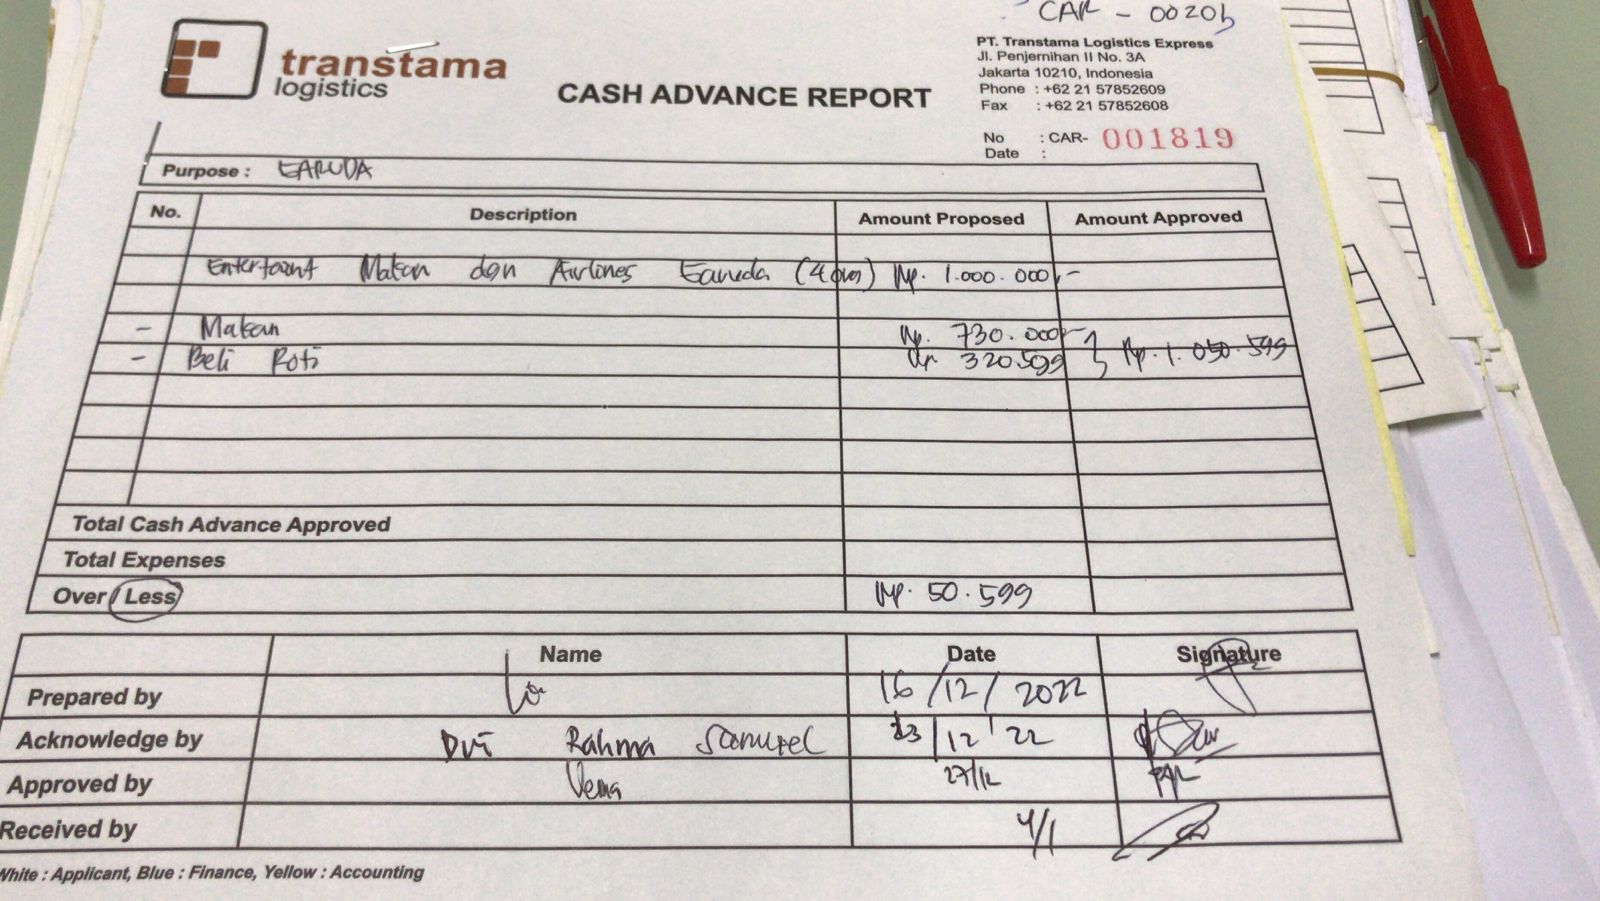 CAR - 0020
transtama
logistics
CASH ADVANCE REPORT
PT. Transtama Logistics Express
Jl. Penjernihan II No. 3A
Jakarta 10210, Indonesia
Phone : +62 21 57852609
Fax : +62 21 57852608
No : CAR- 001819
Date :
Purpose : GARUDA
No. Description Amount Proposed Amount Approved
Makan dgn Airlines Garuda (4 org) Rp. 1.000.000,-
- Makan Rp. 730.000,-
- Beli Roti Rp. 320.599 Rp. 1.050.599
Total Cash Advance Approved
Total Expenses
Over / Less Rp. 50.599
Name Date Signature
Prepared by 16/12/2022
Acknowledge by Dwi Rahma Samuel 23/12'22
Approved by 27/12
Received by 4/1
White : Applicant, Blue : Finance, Yellow : Accounting